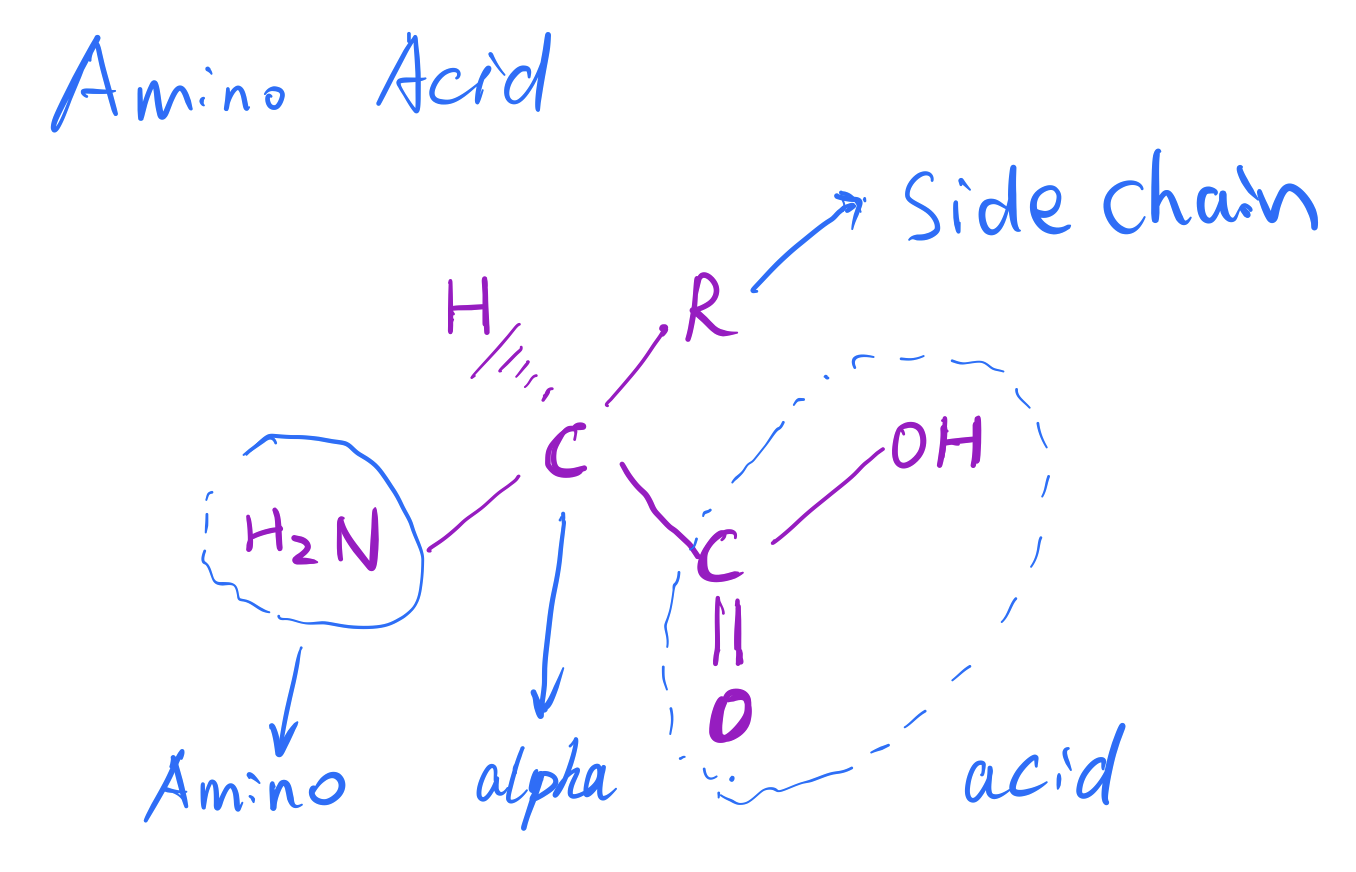 Amino Acid
Side chain
H R
C OH
H2N
C
O
Amino alpha acid